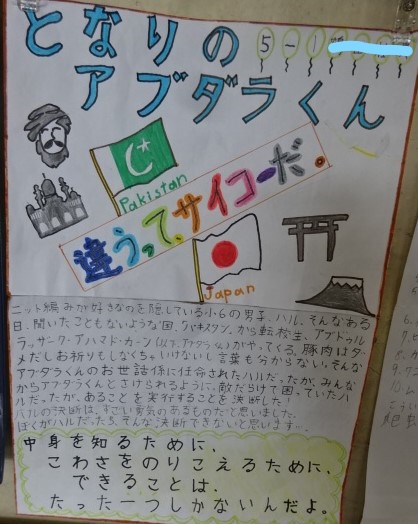 となりの
5-1
アブダラくん
Pakistan
違うって、サイコーだ。
Japan
ニット編みが好きなのを隠している小6の男子、ハル。そんなある
日、聞いたこともないような国、パキスタンから転校生、アブドゥル
ラッサーク・アハマド・カーン(以下、アブダラくん)がやってくる。豚肉はダ
メだしお祈りもしなくちゃいけないし言葉も分からない。そんな
アブダラくんのお世話係に任命されたハルだったが、みんな
からアブダラくんとさけられるように、敵だらけで困っていたハ
ルだったが、あることを実行することを決断した!
ハルの決断は、すごい勇気のあるものだと思いました。
ぼくがハルだったら、そんな決断できないと思います…。
中身を知るために、
こわさをのりこえるために、
できることは、
たった一つしかないんだよ。